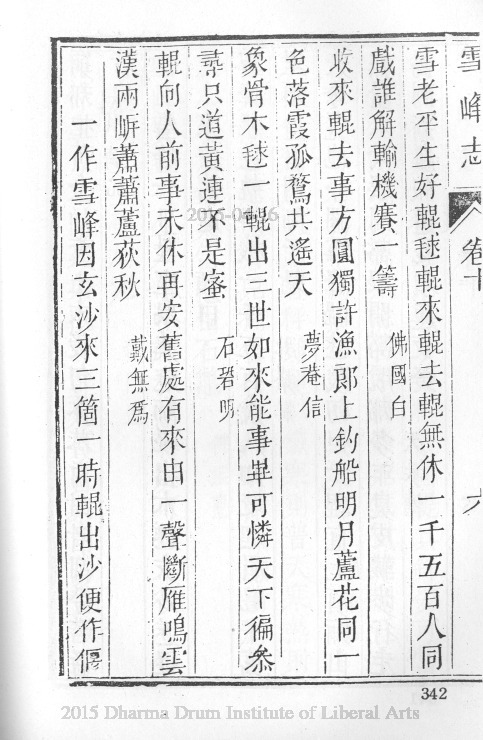 雪峰志 卷十 六
雪老平生好輥毬輥來輥去輥無休一千五百人同
戲誰解輸機賽一籌 佛國白
收來輥去事方圓獨許漁郎上釣船明月蘆花同一
色落霞孤鶩共遙天 夢菴信
象骨木毬一輥出三世如來能事畢可憐天下徧叅
尋只道黃連不是蜜 石碧明
輥向人前事未休再安舊處有來由一聲斷雁鳴雲
漢兩岍蕭蕭蘆荻秋 戴無為
一作雪峰因玄沙來三箇一時輥出沙便作偃
342
2015 Dharma Drum Institute of Liberal Arts